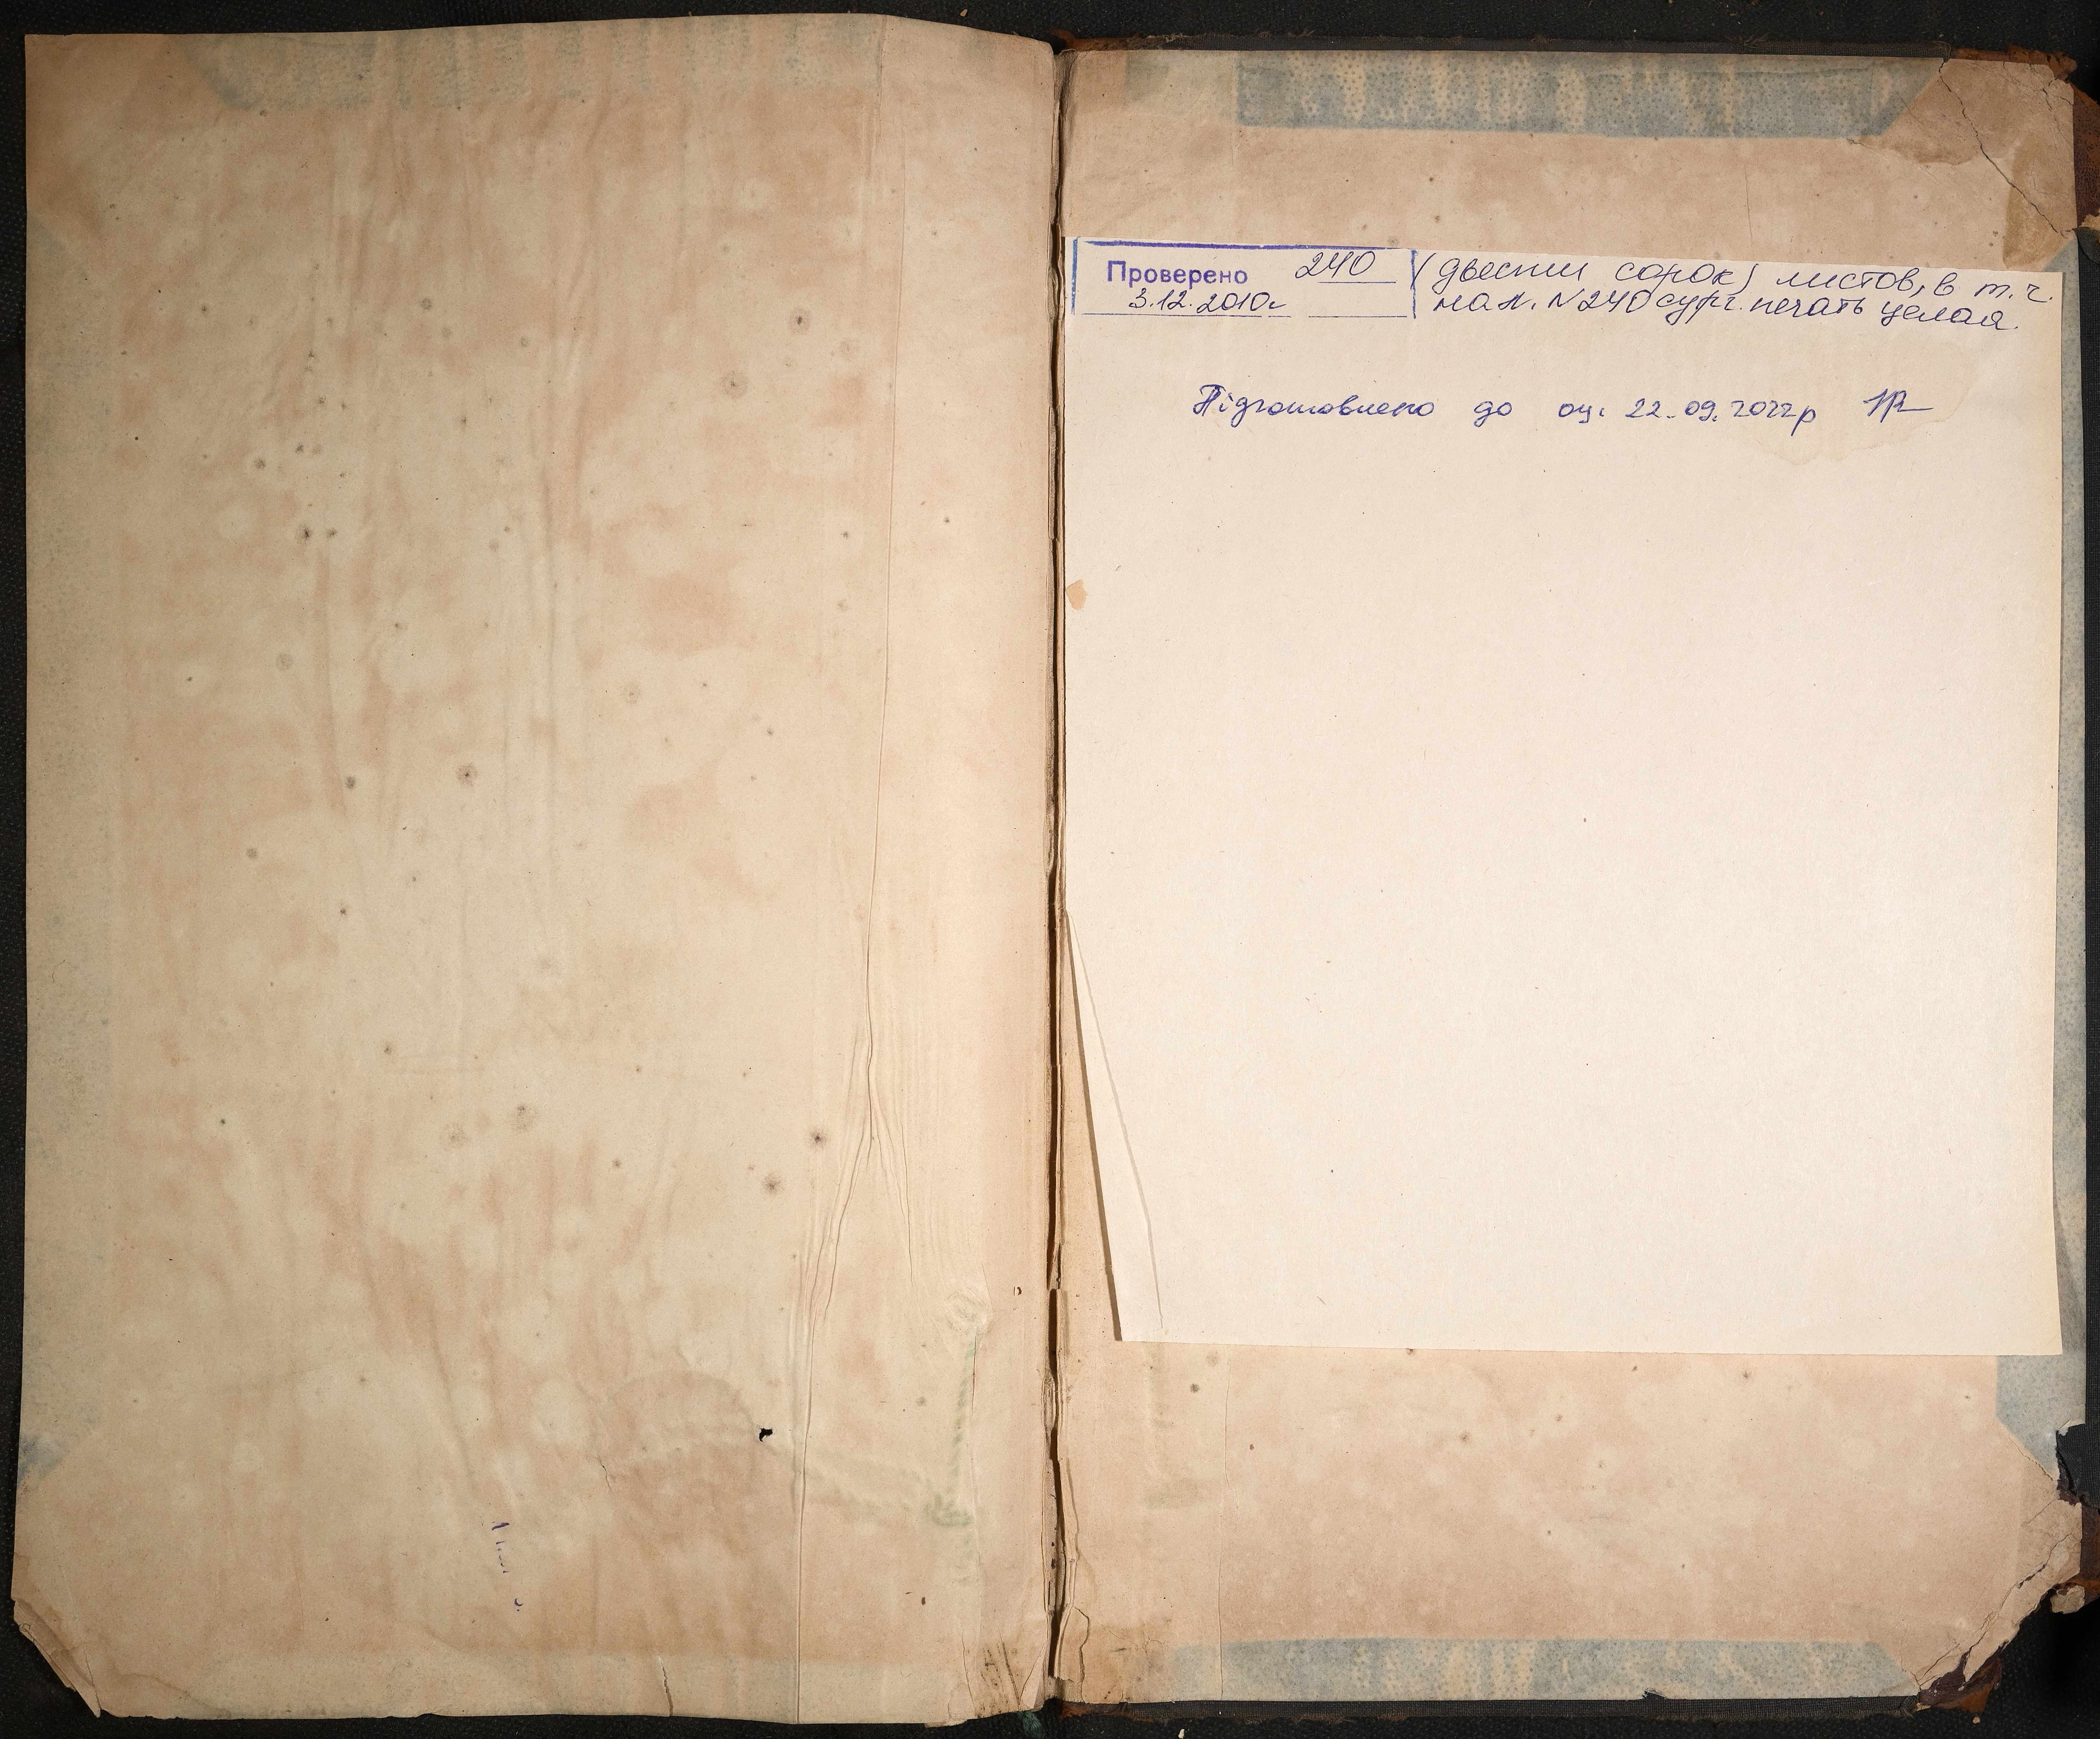 Проверено 240 (двести сорок) листов, в т.ч.
3.12.2010г на л. N 240 сург. печать целая.
Підготовлено до оц. 22.09.2022р